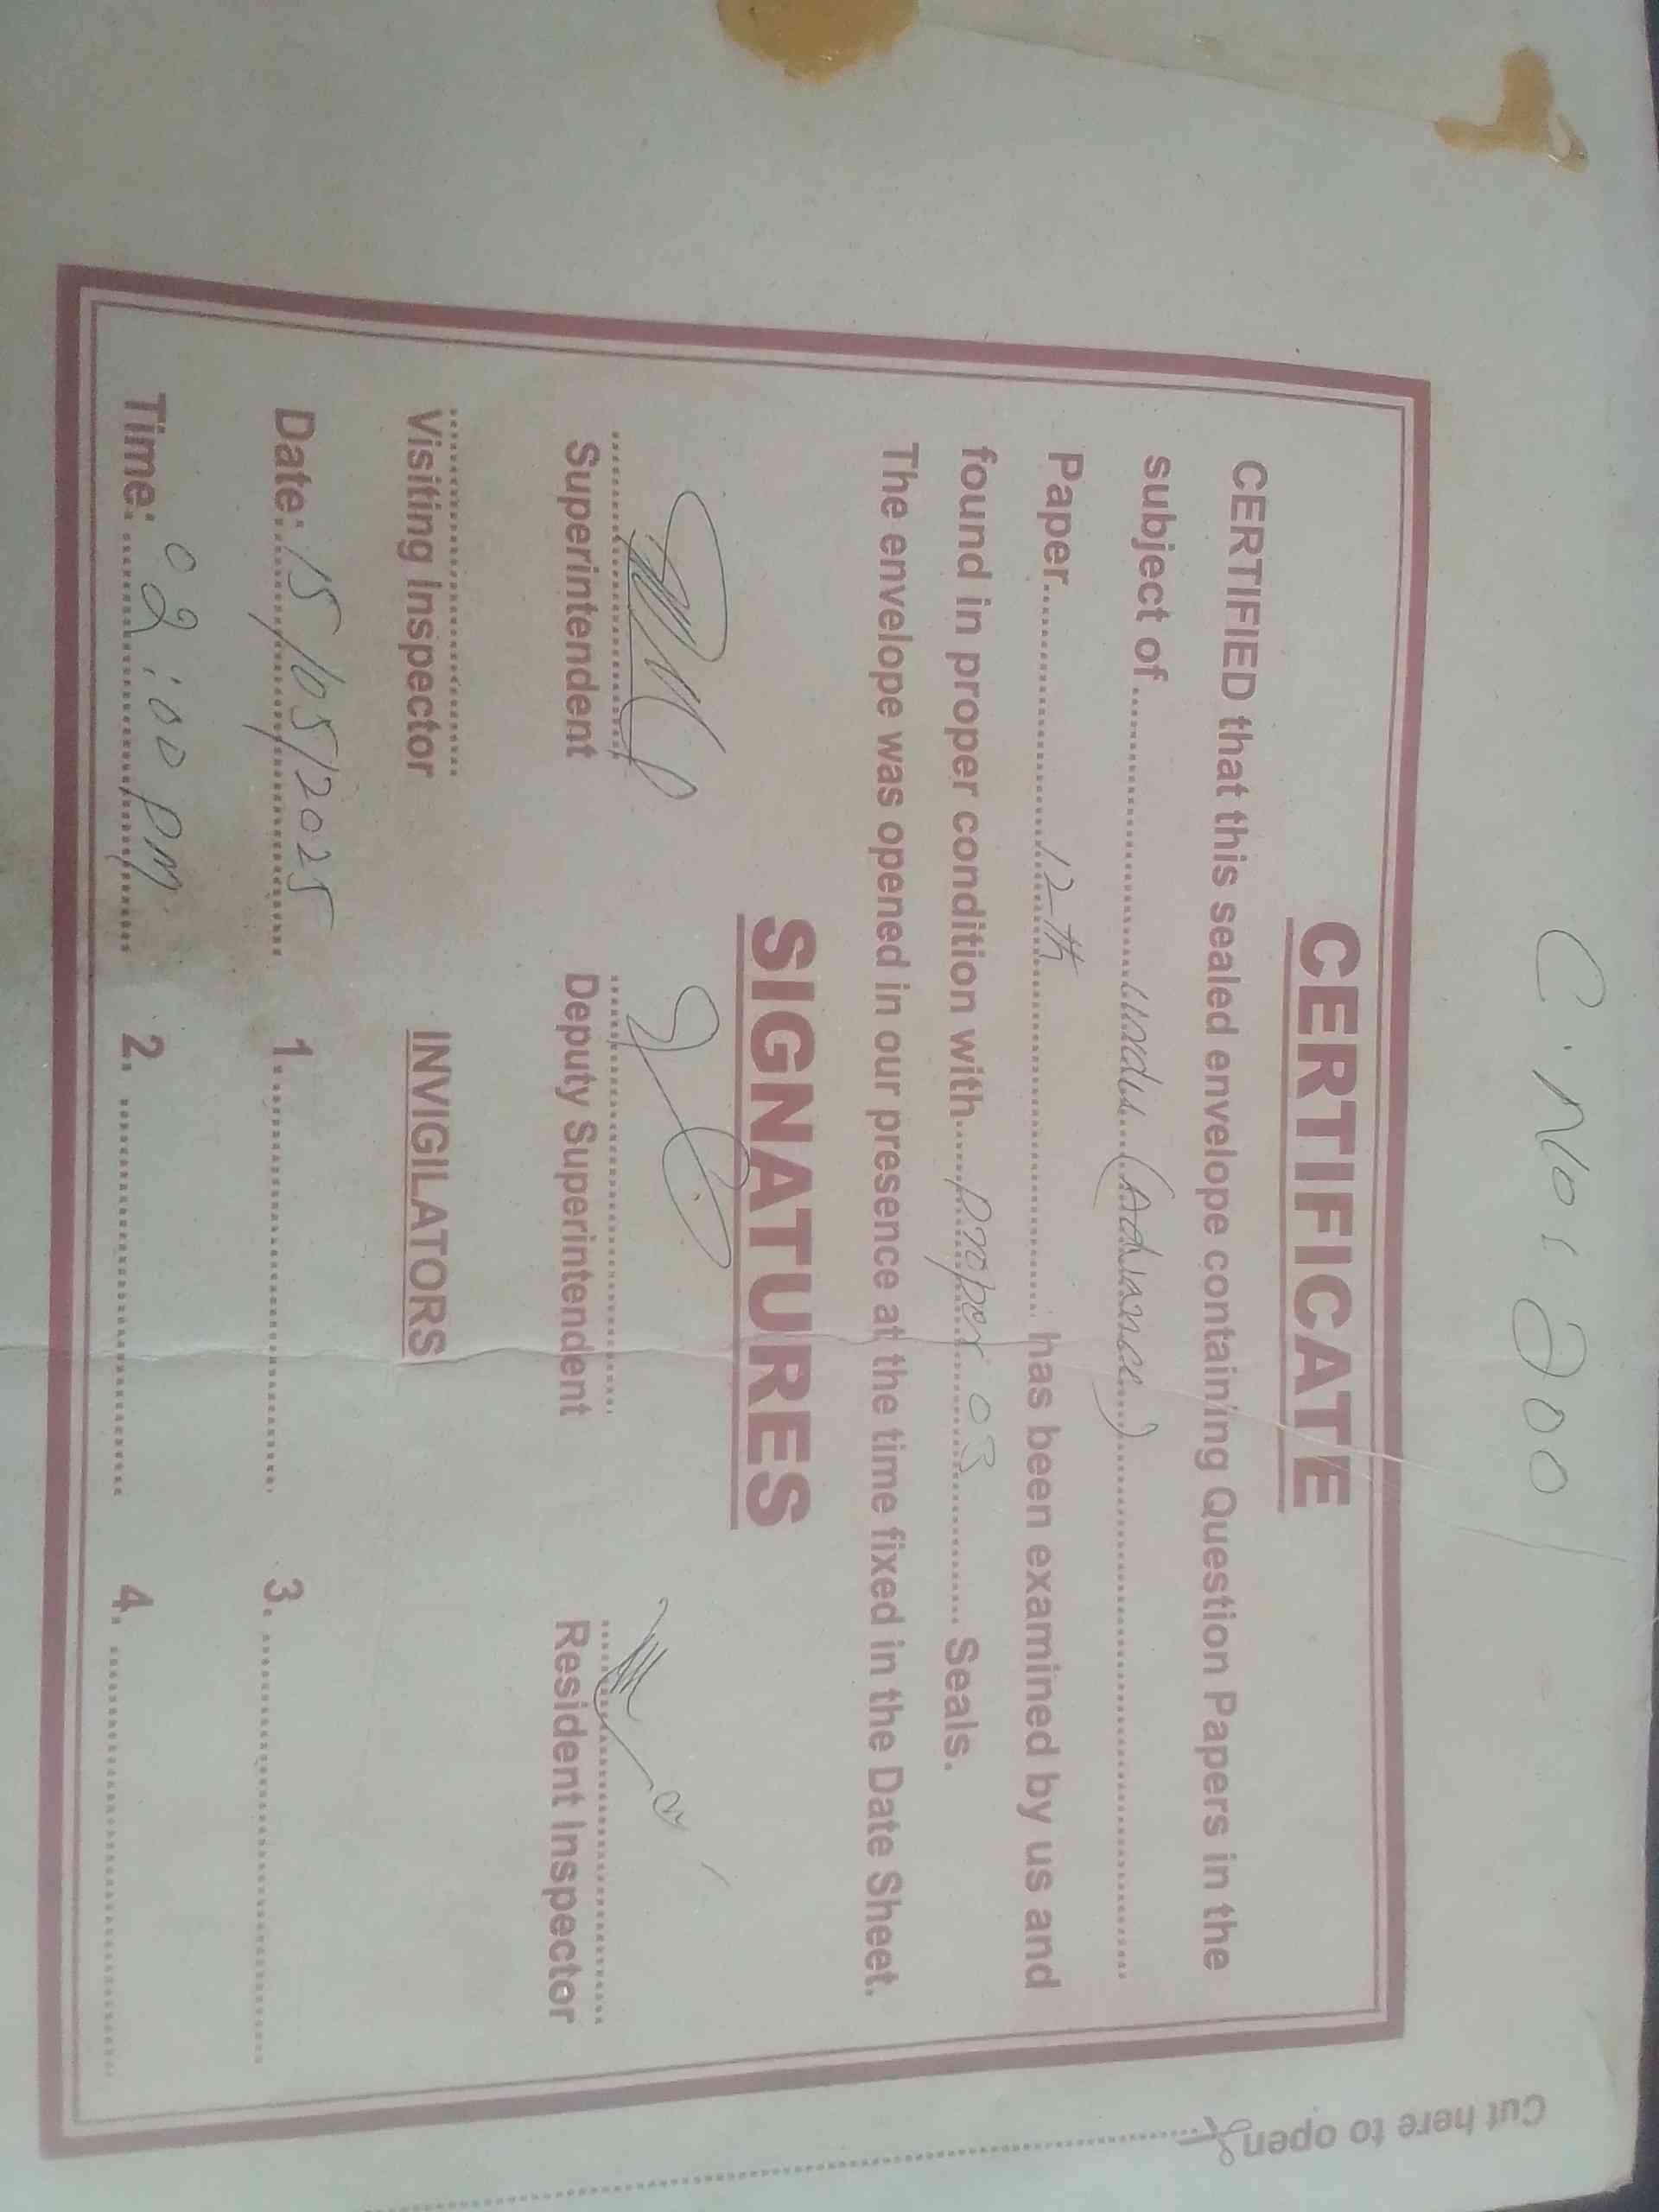 C. No: 200
CERTIFICATE
CERTIFIED that this sealed envelope containing Question Papers in the
subject of ............ Urdu (Advance) ............
Paper ............ 12th ............ has been examined by us and
found in proper condition with ...... proper 03 ...... Seals.
The envelope was opened in our presence at the time fixed in the Date Sheet.
SIGNATURES
Superintendent Deputy Superintendent Resident Inspector
Visiting Inspector INVIGILATORS
Date: 15/05/2025 1. ............ 3. ............
Time: 02:00 PM. 2. ............ 4. ............
Cut here to open